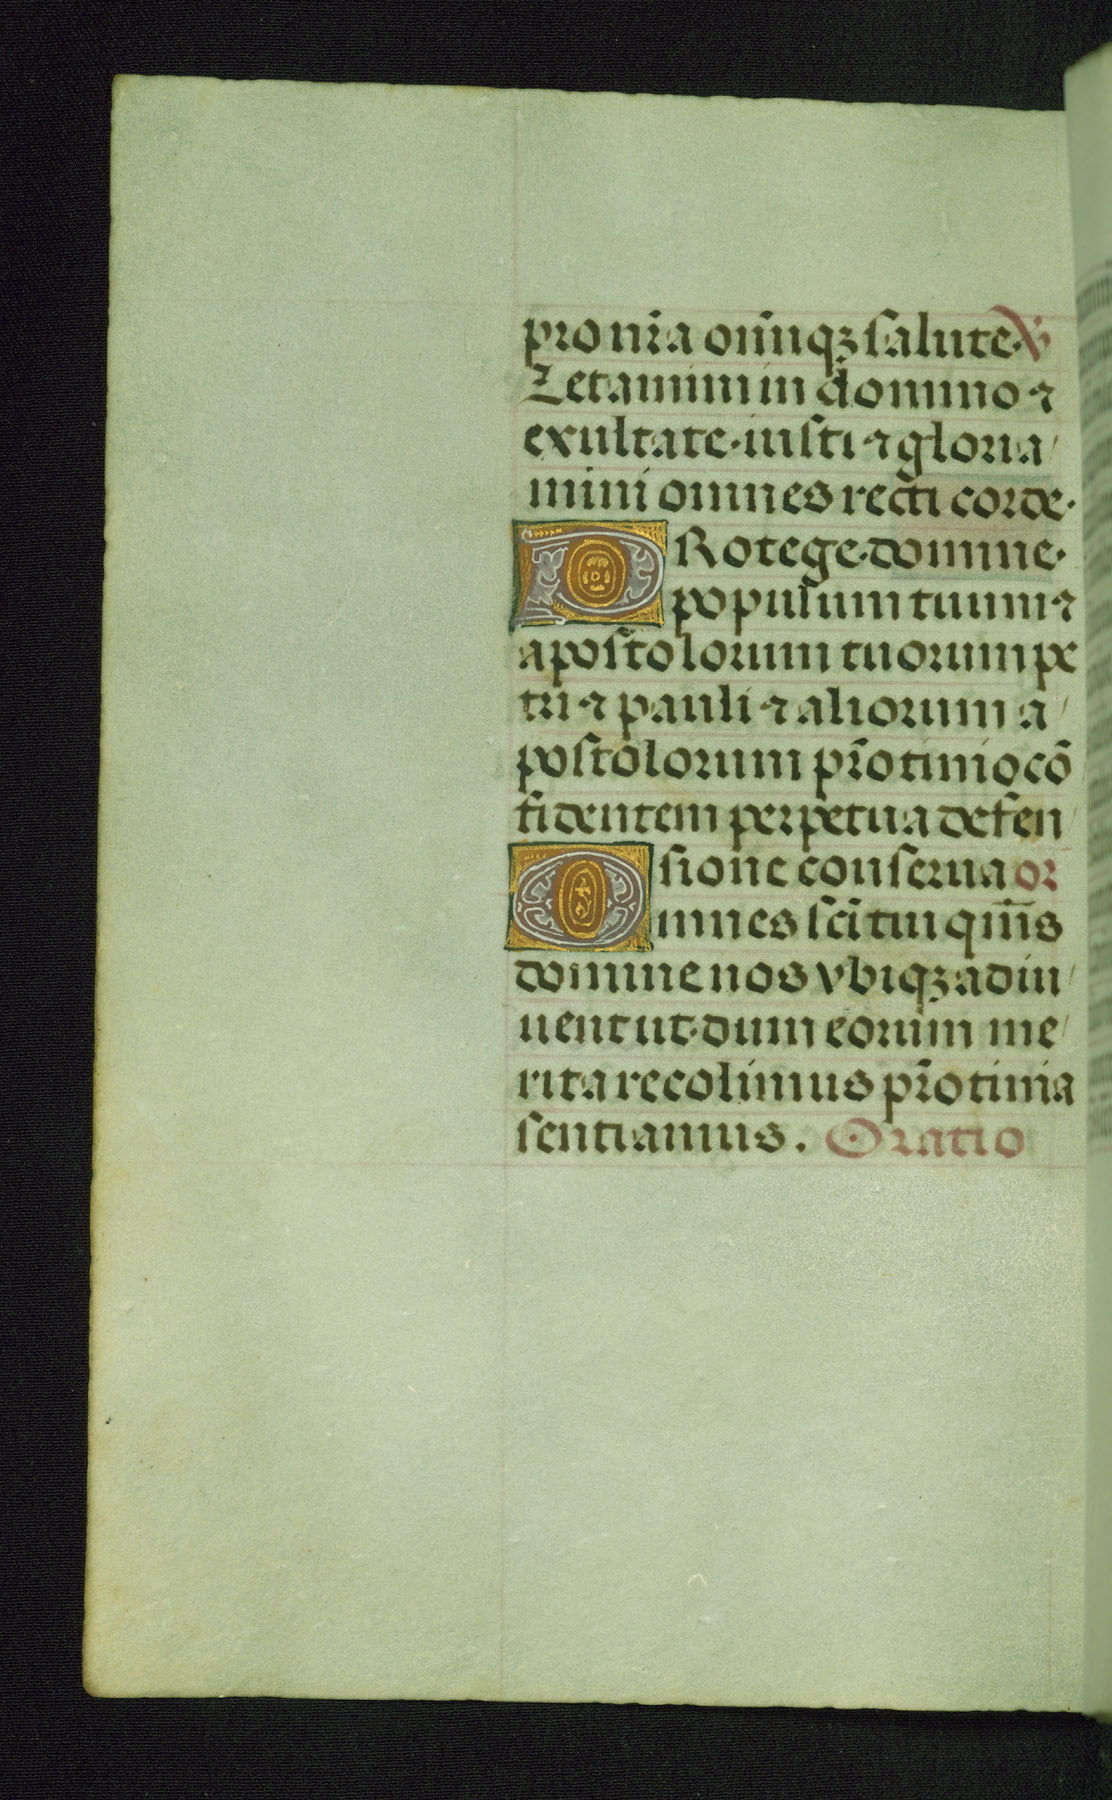 pro nr̄a om̄iuqꝫ salute. ℣
Letamini in domino ⁊
exultate. iusti ⁊ gloria/
mini omnes recti corde.
PRotege. domine.
populum tuum ⁊
apostolorum tuorum pe
tri ⁊ pauli ⁊ aliorum a/
postolorum pr̄otinio cō
fidentem perpetua defen/
sione conserua or
Omnes sc̄i tui qm̄s
domine nos vbiqꝫ adiu/
uent ut. dum eorum me/
rita recolimus pr̄otinia
sentiamus. Oratio